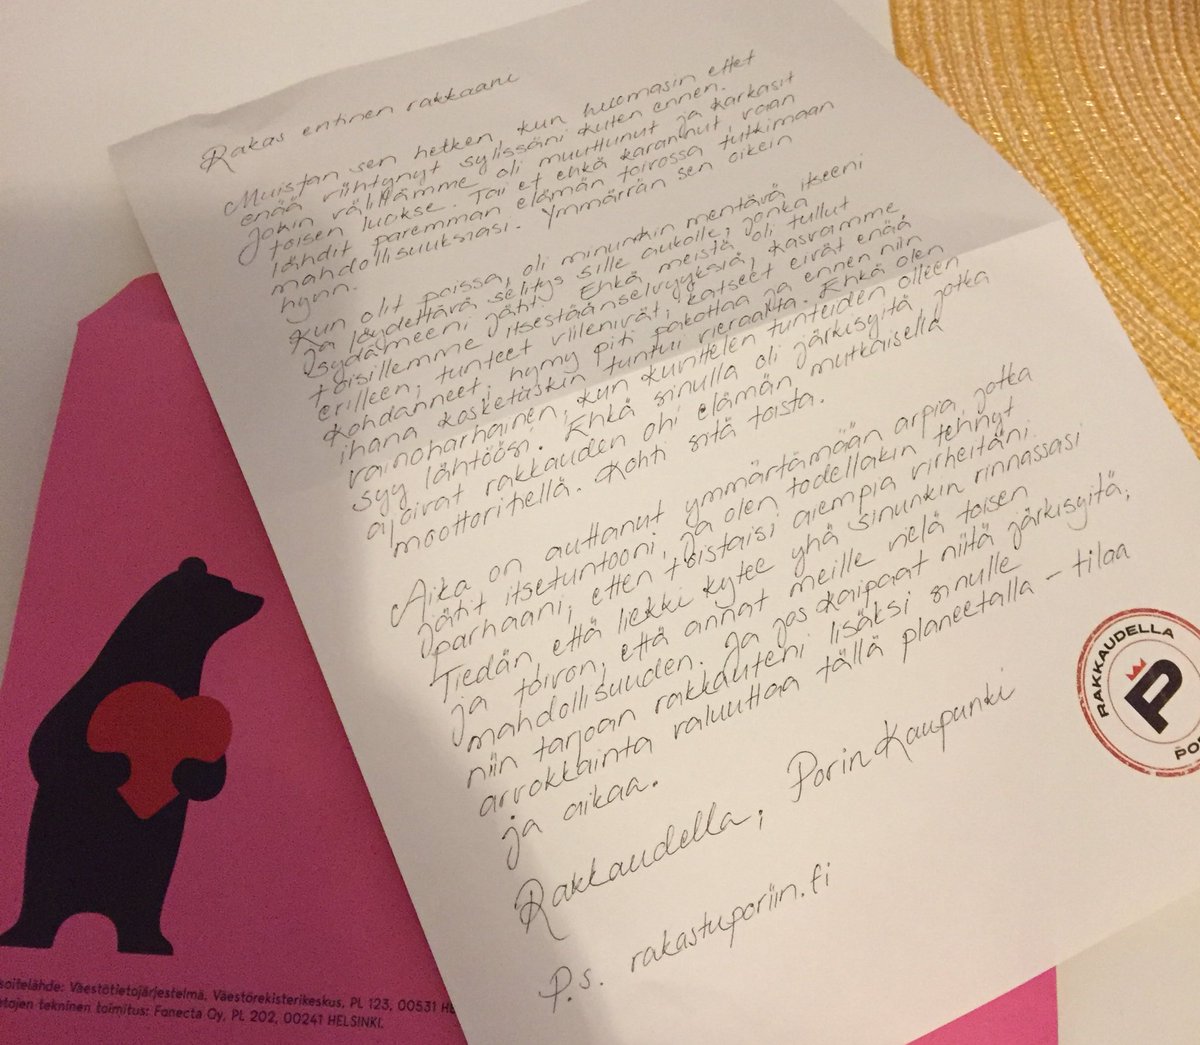 Rakas entinen rakkaani
Muistan sen hetken, kun huomasin ettet
enää viihtynyt sylissäni kuten ennen.
Jokin välillämme oli muuttunut ja karkasit
toisen luokse. Tai et ehkä karannut, vaan
lähdit paremman elämän toivossa tutkimaan
mahdollisuuksiasi. Ymmärrän sen oikein
hyvin.
Kun olit poissa, oli minunkin mentävä itseeni
ja löydettävä selitys sille aukolle, jonka
sydämeeni jätit. Ehkä meistä oli tullut
toisillemme itsestäänselvyyksiä, kasvamme
erilleen; tunteet viilenivät, katseet eivät enää
kohdanneet, hymy piti pakottaa ja ennen niin
ihana kosketuskin tuntui vieraalta. Ehkä olen
vainoharhainen, kun kuvittelen tunteiden olleen
syy lähtöösi. Ehkä sinulla oli järkisyitä, jotka
ajoivat rakkauden ohi elämän mutkaisella
moottoritiellä. Kohti sitä toista.
Aika on auttanut ymmärtämään arpia, jotka
jätit itsetuntooni, ja olen todellakin tehnyt
parhaani, etten toistaisi aiempia virheitäni.
Tiedän että liekki kytee yhä sinunkin rinnassasi
ja toivon, että annat meille vielä toisen
mahdollisuuden. Ja jos kaipaat niitä järkisyitä,
niin tarjoan rakkauteni lisäksi sinulle
arvokkainta valuuttaa tällä planeetalla – tilaa
ja aikaa.
Rakkaudella, Porin Kaupunki
P.s. rakastuporiin.fi
RAKKAUDELLA
P
soitelähde: Väestötietojärjestelmä, Väestörekisterikeskus, PL 123, 00531 HE
etojen tekninen toimitus: Fonecta Oy, PL 202, 00241 HELSINKI.